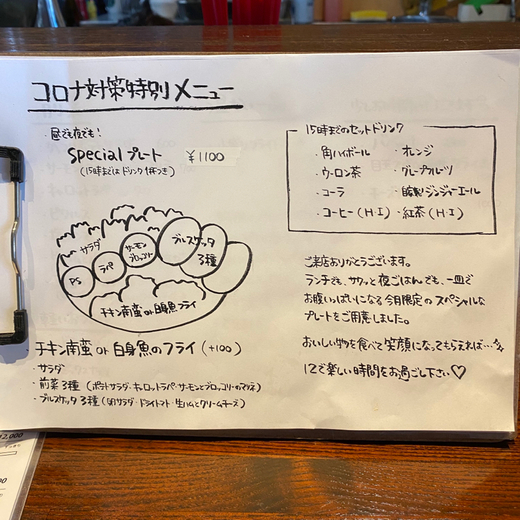 コロナ対策特別メニュー
・昼でも夜でも!
Special プレート ¥1100
(15時まではドリンク1杯つき)
サラダ
サーモンブロッコリ
ブルスケッタ
3種
PS
ラペ
チキン南蛮 or 白身魚フライ
チキン南蛮 or 白身魚のフライ (+100)
・サラダ
・前菜3種 (ポテトサラダ・キャロットラペ・サーモンとブロッコリーのマヨネ)
・ブルスケッタ3種 (卵サラダ・ドライトマト・生ハムとクリームチーズ)
15時までのセットドリンク
・角ハイボール ・オレンジ
・ウーロン茶 ・グレープフルーツ
・コーラ ・自家製ジンジャーエール
・コーヒー (H・I) ・紅茶 (H・I)
ご来店ありがとうございます。
ランチでも、サクッと夜ごはんでも、一皿で
お腹いっぱいになる今月限定のスペシャルな
プレートをご用意しました。
おいしい物を食べて笑顔になってもらえれば…
12で楽しい時間をお過ごし下さい♡
12,000